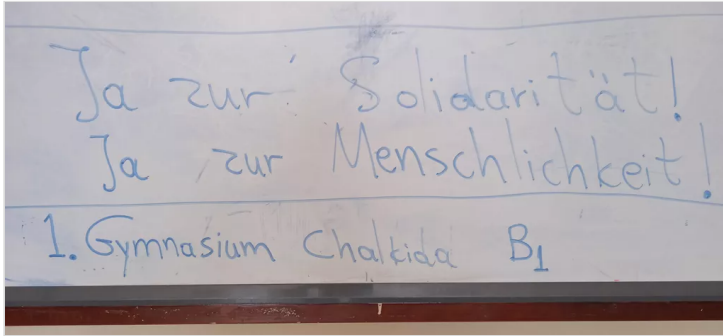 Ja zur Solidarität!
Ja zur Menschlichkeit!
1. Gymnasium Chalkida B1